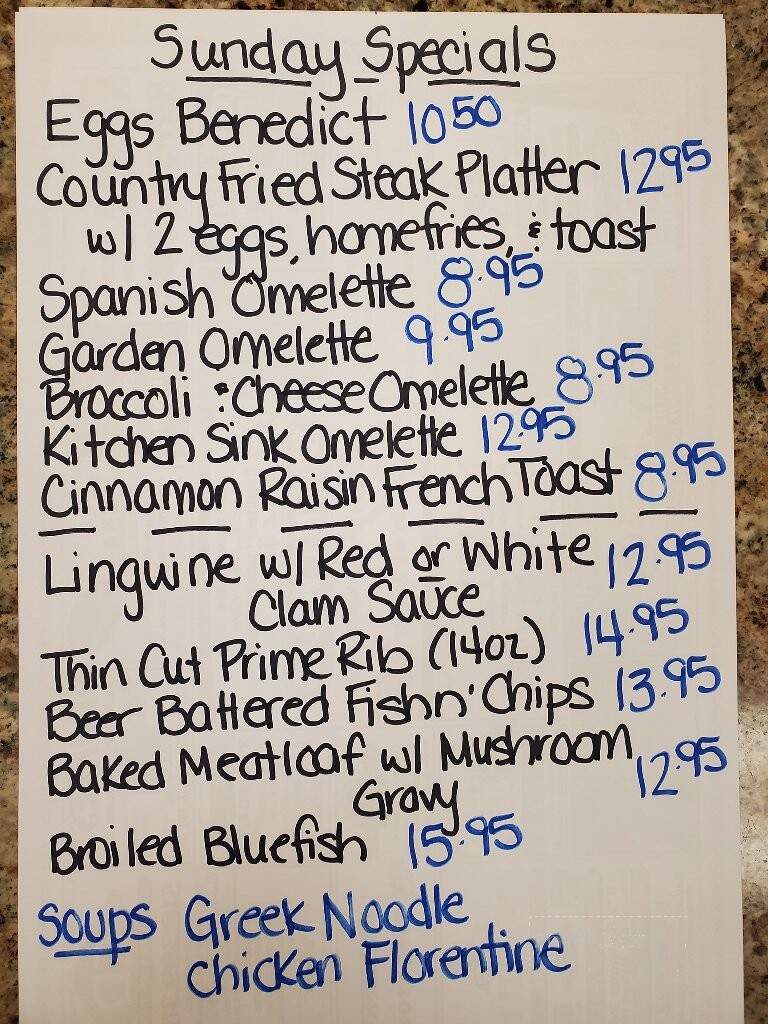 Sunday Specials
Eggs Benedict 10 50
Country Fried Steak Platter 12 95
w/ 2 eggs, homefries, & toast
Spanish Omelette 8.95
Garden Omelette 9.95
Broccoli & Cheese Omelette 8.95
Kitchen Sink Omelette 12.95
Cinnamon Raisin French Toast 8.95
Linguine w/ Red or White 12.95
Clam Sauce
Thin Cut Prime Rib (14oz) 14.95
Beer Battered Fish n' Chips 13.95
Baked Meatloaf w/ Mushroom 12.95
Gravy
Broiled Bluefish 15.95
Soups Greek Noodle
Chicken Florentine